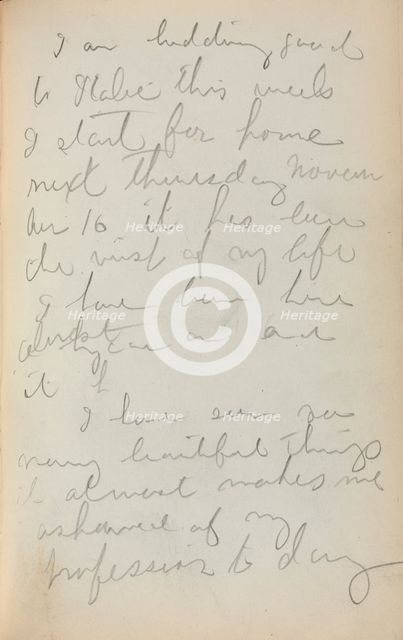 I am bidding good
to Italie this week
I start for home
next Thursday Novem
ber 16 it has been
the visit of my life
I have been here
almost a and
it h
I have seen so
many beautiful things
it almost makes me
ashamed of my
profession to day
Heritage
Heritage
Heritage
Heritage
Heritage
Heritage
Heritage
Heritage
Heritage
©